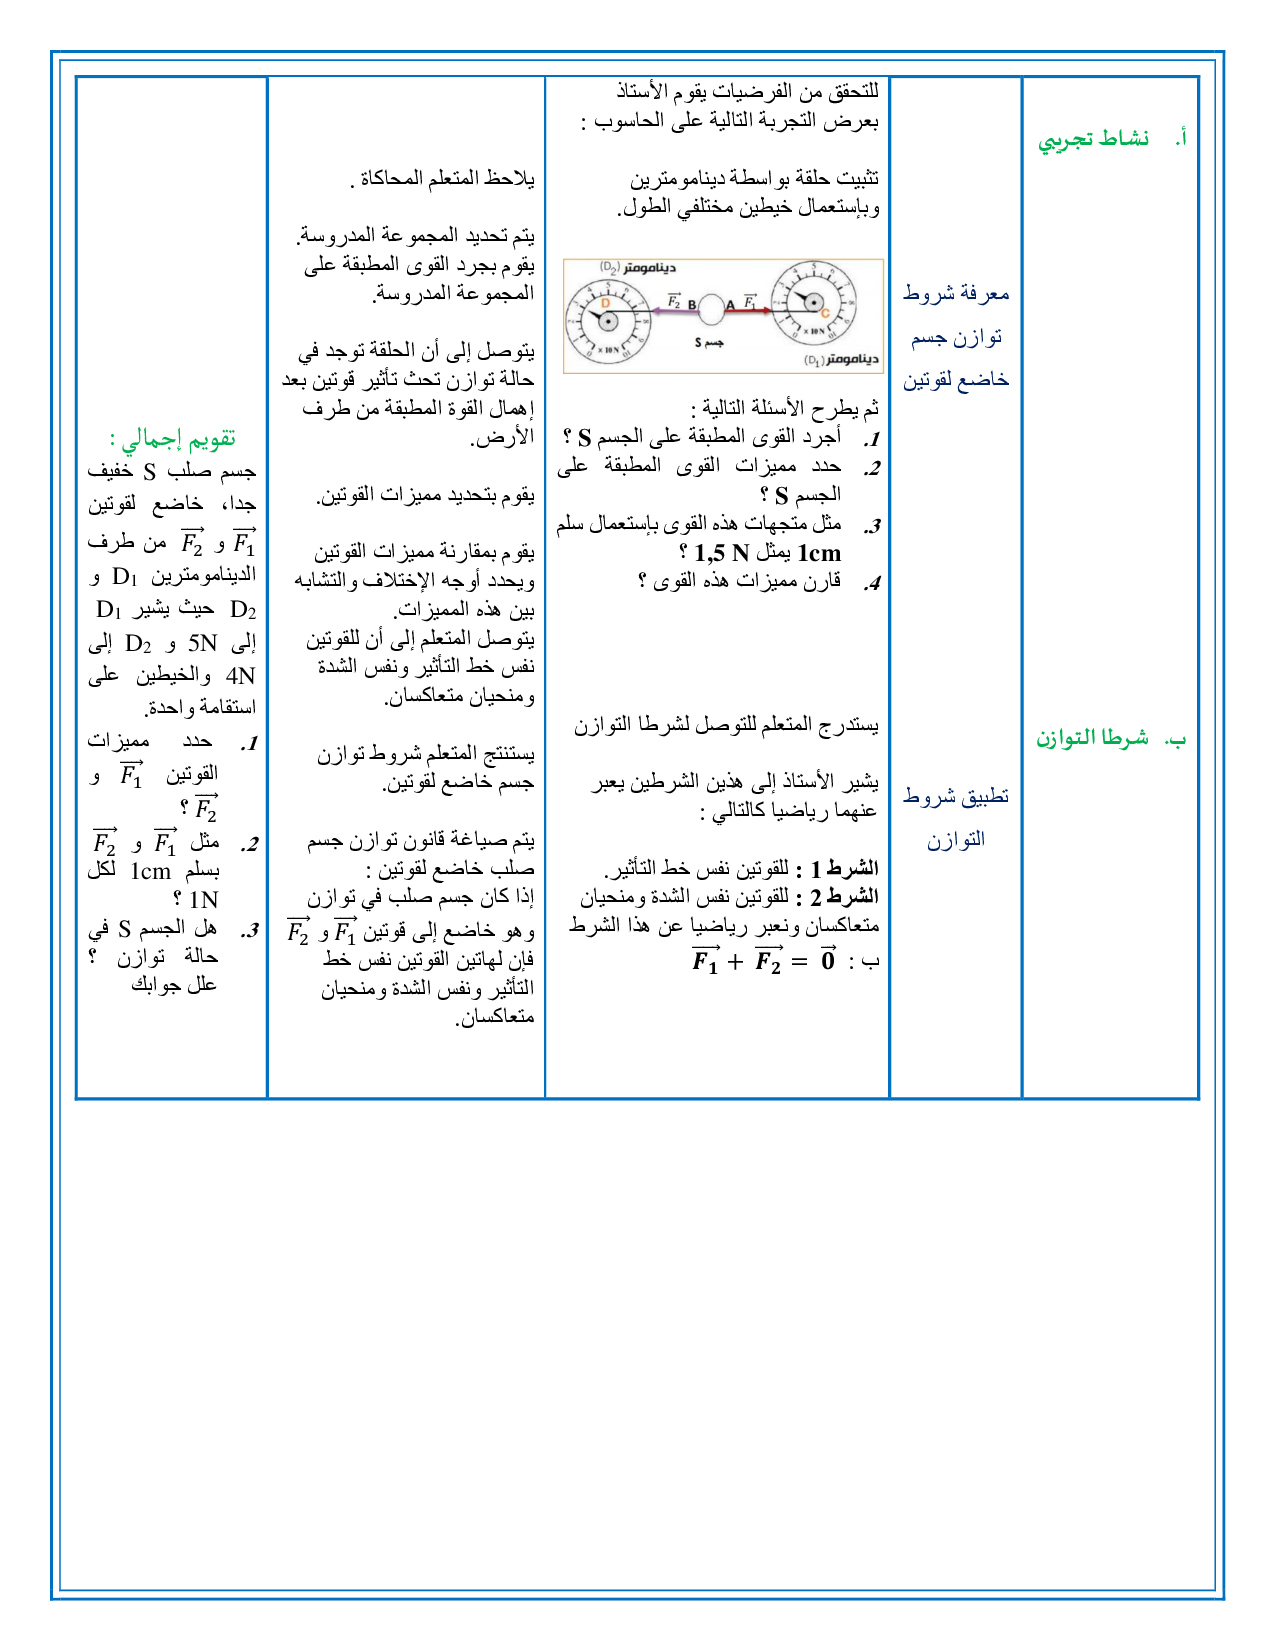 أ. نشاط تجريبي
ب. شرطا التوازن
معرفة شروط
توازن جسم
خاضع لقوتين
تطبيق شروط
التوازن
للتحقق من الفرضيات يقوم الأستاذ
بعرض التجربة التالية على الحاسوب :
تثبيت حلقة بواسطة دينامومترين
وبإستعمال خيطين مختلفي الطول.
دينامومتر (D2)
D
F2
B
A
F1
C
جسم S
× 10 N
× 10 N
دينامومتر (D1)
ثم يطرح الأسئلة التالية :
1. أجرد القوى المطبقة على الجسم S ؟
2. حدد مميزات القوى المطبقة على
الجسم S ؟
3. مثل متجهات هذه القوى بإستعمال سلم
1cm يمثل 1,5 N ؟
4. قارن مميزات هذه القوى ؟
يستدرج المتعلم للتوصل لشرطا التوازن
يشير الأستاذ إلى هذين الشرطين يعبر
عنهما رياضيا كالتالي :
الشرط 1 : للقوتين نفس خط التأثير.
الشرط 2 : للقوتين نفس الشدة ومنحيان
متعاكسان ونعبر رياضيا عن هذا الشرط
ب : $\vec{F_1} + \vec{F_2} = \vec{0}$
يلاحظ المتعلم المحاكاة .
يتم تحديد المجموعة المدروسة.
يقوم بجرد القوى المطبقة على
المجموعة المدروسة.
يتوصل إلى أن الحلقة توجد في
حالة توازن تحث تأثير قوتين بعد
إهمال القوة المطبقة من طرف
الأرض.
يقوم بتحديد مميزات القوتين.
يقوم بمقارنة مميزات القوتين
ويحدد أوجه الإختلاف والتشابه
بين هذه المميزات.
يتوصل المتعلم إلى أن للقوتين
نفس خط التأثير ونفس الشدة
ومنحيان متعاكسان.
يستنتج المتعلم شروط توازن
جسم خاضع لقوتين.
يتم صياغة قانون توازن جسم
صلب خاضع لقوتين :
إذا كان جسم صلب في توازن
وهو خاضع إلى قوتين $\vec{F_1}$ و $\vec{F_2}$
فإن لهاتين القوتين نفس خط
التأثير ونفس الشدة ومنحيان
متعاكسان.
تقويم إجمالي :
جسم صلب S خفيف
جدا، خاضع لقوتين
$\vec{F_1}$ و $\vec{F_2}$ من طرف
الدينامومترين D1 و
D2 حيث يشير D1
إلى 5N و D2 إلى
4N والخيطين على
استقامة واحدة.
1. حدد مميزات
القوتين $\vec{F_1}$ و
$\vec{F_2}$ ؟
2. مثل $\vec{F_1}$ و $\vec{F_2}$
بسلم 1cm لكل
1N ؟
3. هل الجسم S في
حالة توازن ؟
علل جوابك